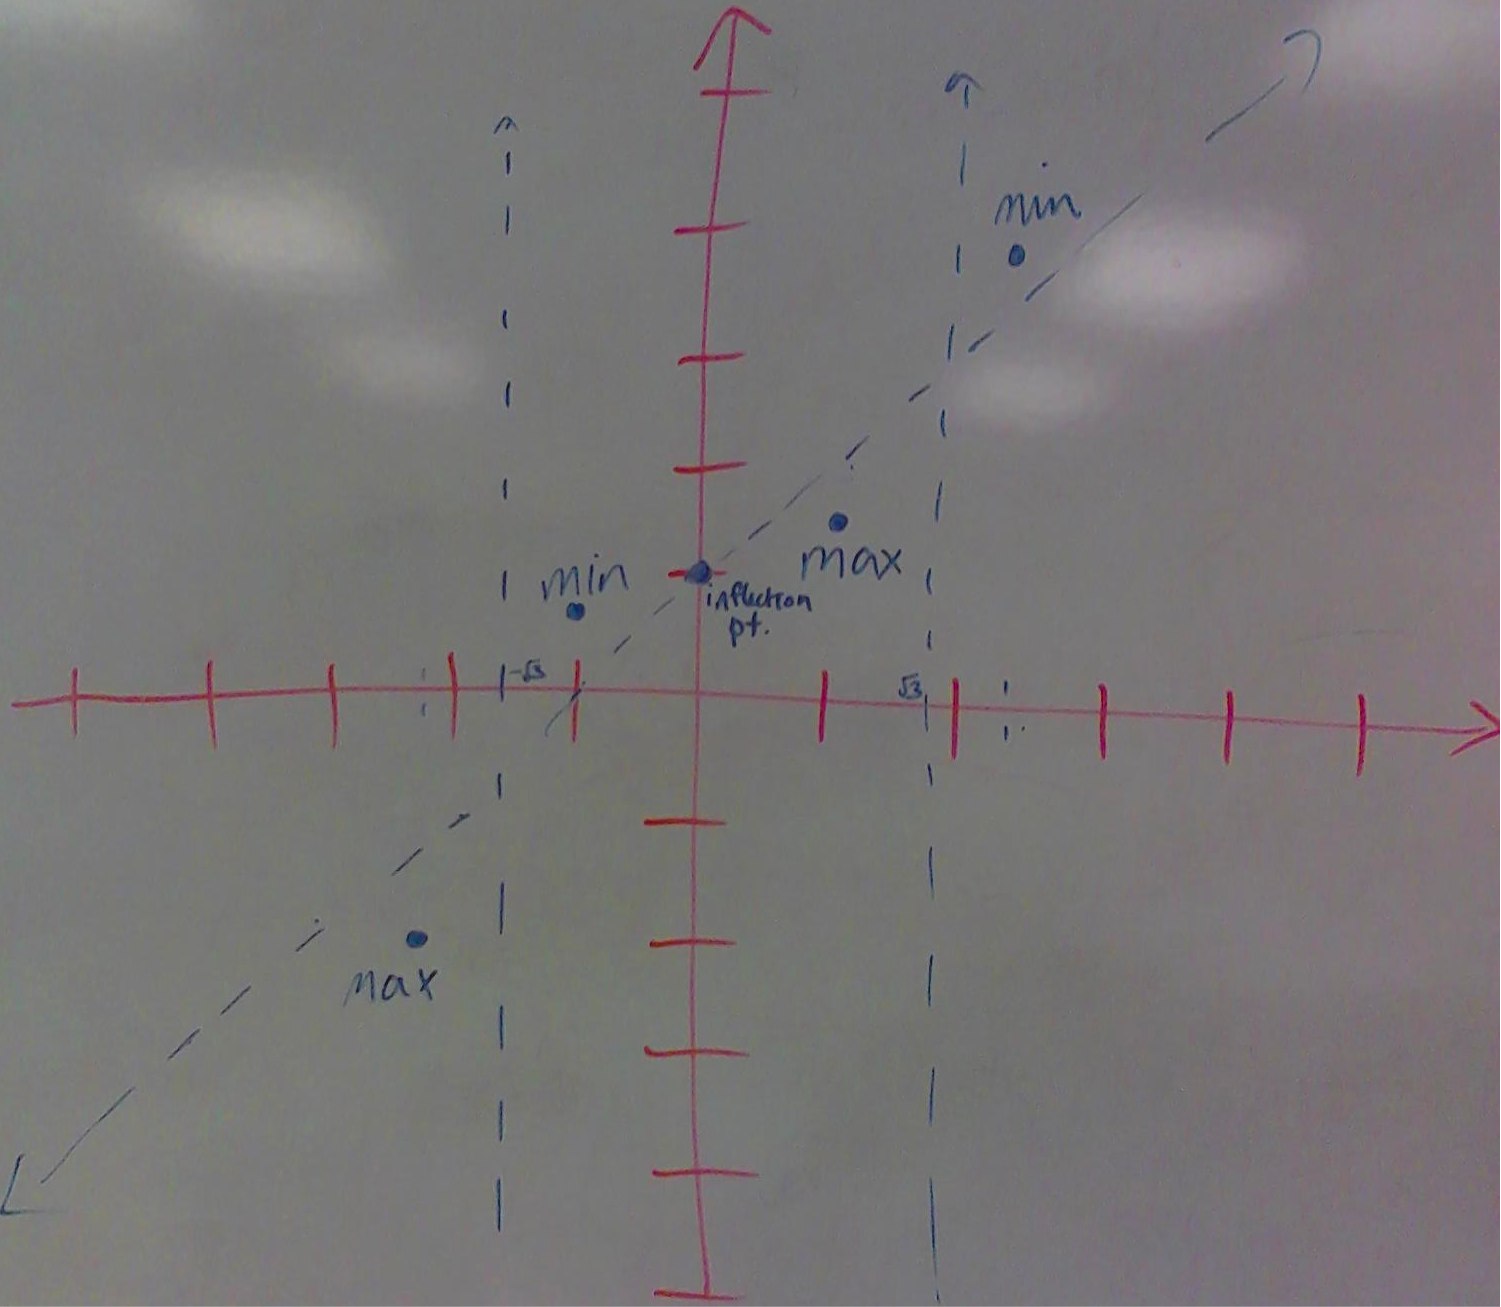 min
min
max
inflection
pt.
-√3
√3
max